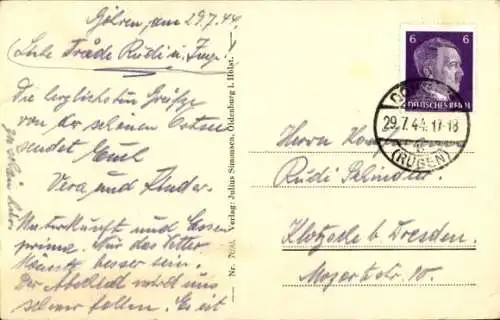 Göhren, am 29.7.44.
Liebe Trude Rudi u. Inge!
Die herzlichsten Grüße
von der schönen Ostsee
sendet Euch
Vera und Kinder.
Unterkunft und Essen
prima. Nur das Wetter
könnte besser sein.
Der Abschied wird uns
schwer fallen. Es ist
Nr. Verlag: Julius Simonsen, Oldenburg i. Holst.
6 6
DEUTSCHES REICH
29.7.44.17-18
(RÜGEN)
Herrn
Rudi
Klotzsche b/ Dresden.
Mozartstr. 10.